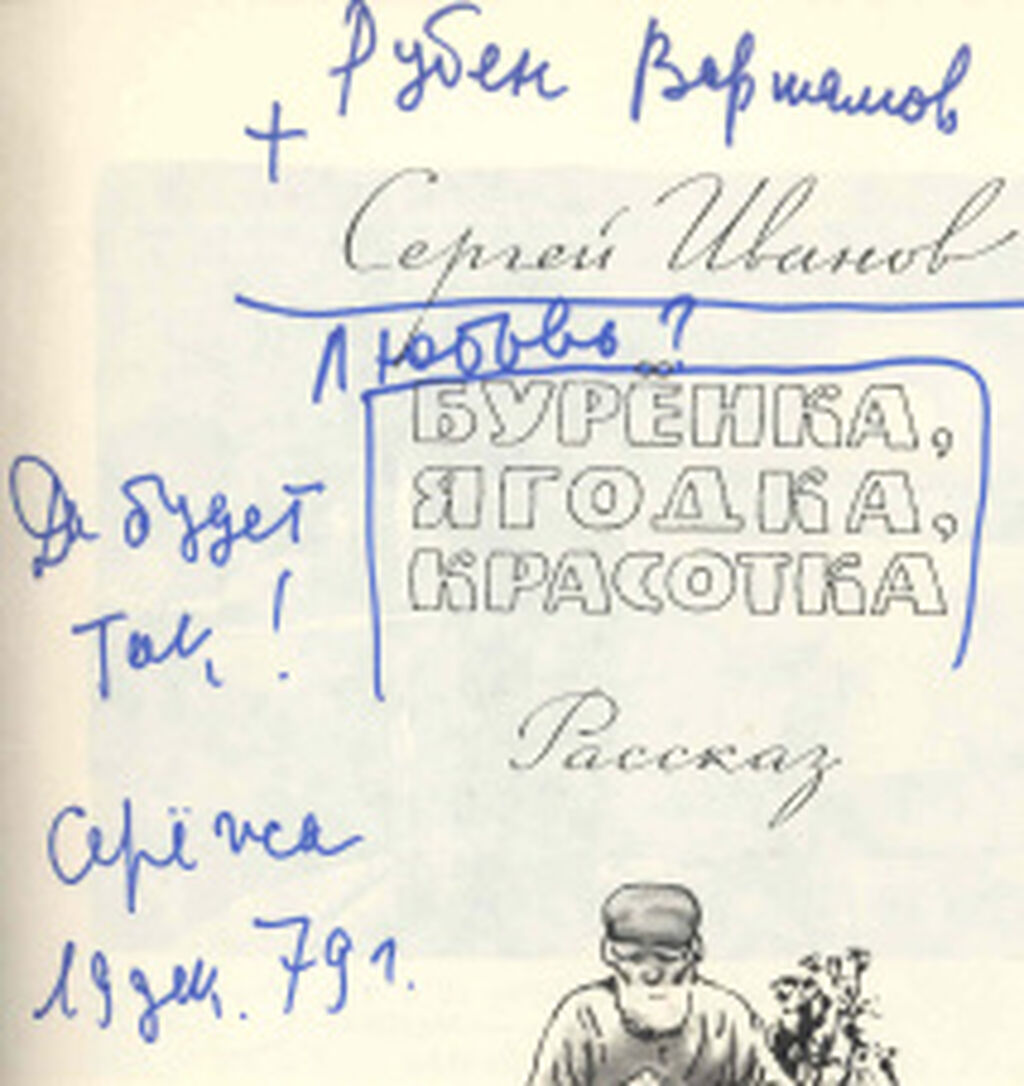 Рубен Варташов
+
Сергей Иванов
Любовь?
БУРЁНКА,
ЯГОДКА,
КРАСОТКА
Да будет
так!
Рассказ
Серёжа
19 дек. 79 г.